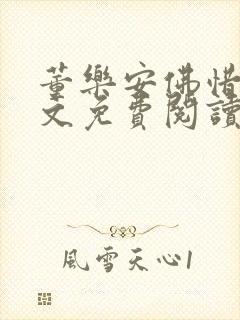 董樂安佛惜
文免費閱讀
風雪天心1